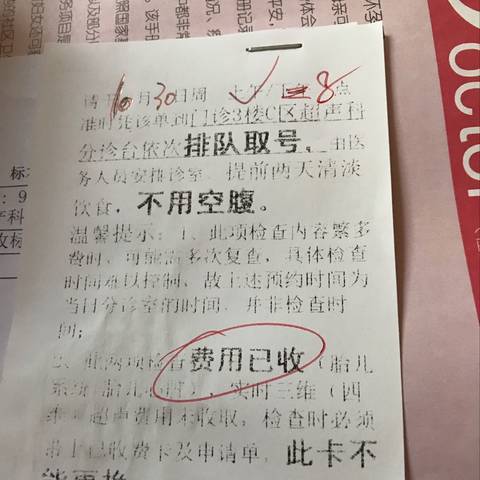 请于10月30日周 上午/门 8点
准时凭该单到门诊3楼C区超声科
分诊台依次排队取号,由医
务人员安排诊室。提前两天清淡
饮食,不用空腹。
温馨提示:1、此项检查内容繁多
费时,可能需多次复查,具体检查
时间难以控制,故上述预约时间为
当日分诊室的时间,并非检查时
间;
2、此两项检查费用已收(胎儿
系统 胎儿心脏),实时三维(四
维)超声费用未收取,检查时必须
带上已收费卡及申请单,此卡不
能更换
标:
: 9
科
octor